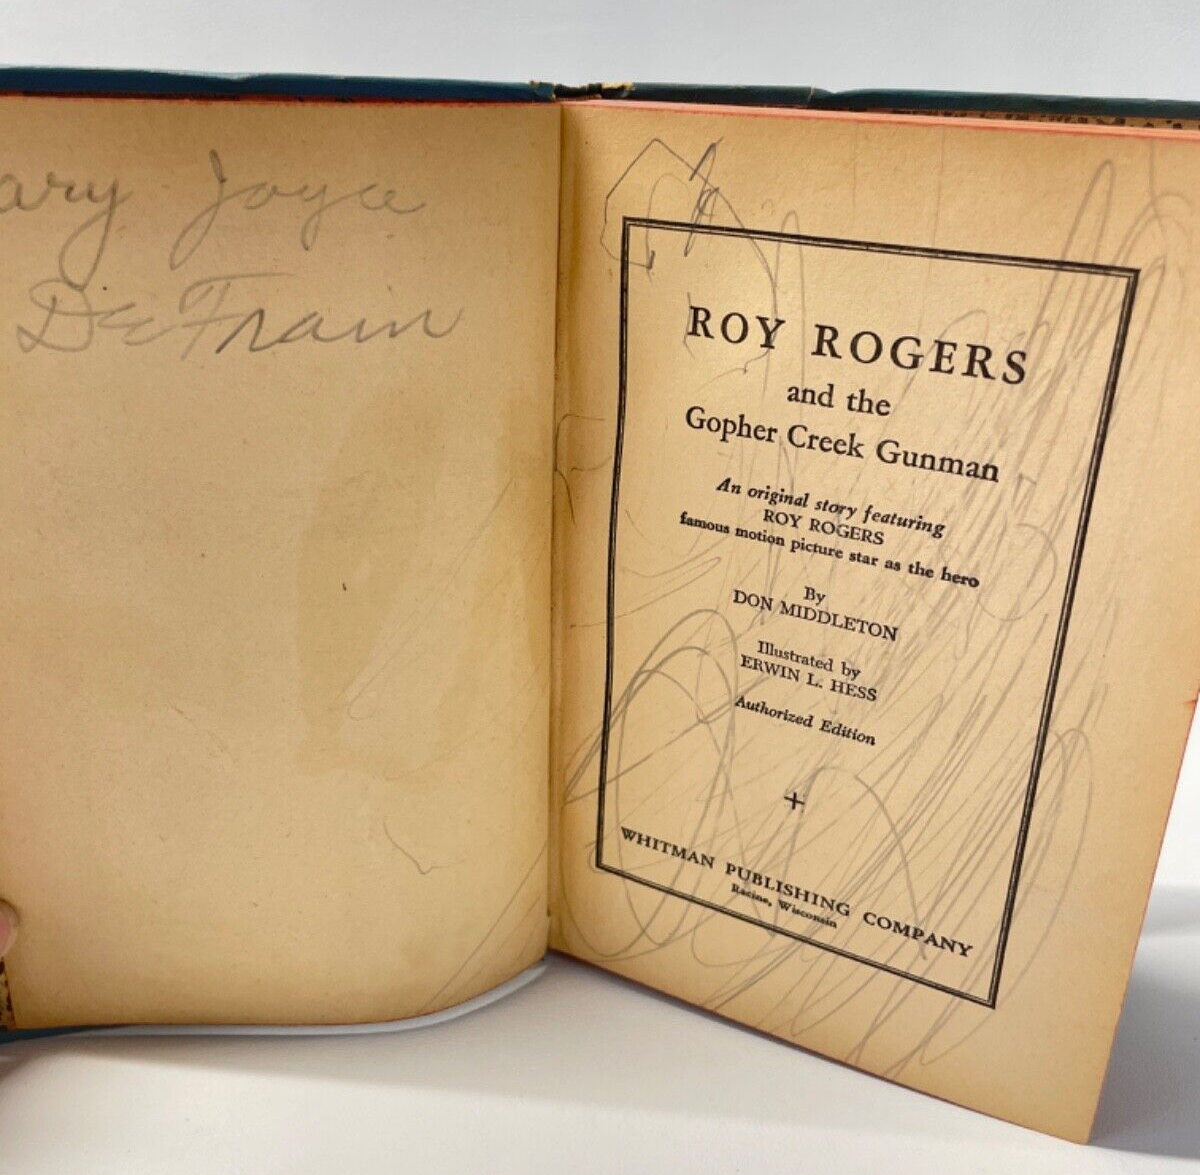 ary Joyce
DeFrain
ROY ROGERS
and the
Gopher Creek Gunman
An original story featuring
ROY ROGERS
famous motion picture star as the hero
By
DON MIDDLETON
Illustrated by
ERWIN L. HESS
Authorized Edition
WHITMAN PUBLISHING COMPANY
Racine, Wisconsin